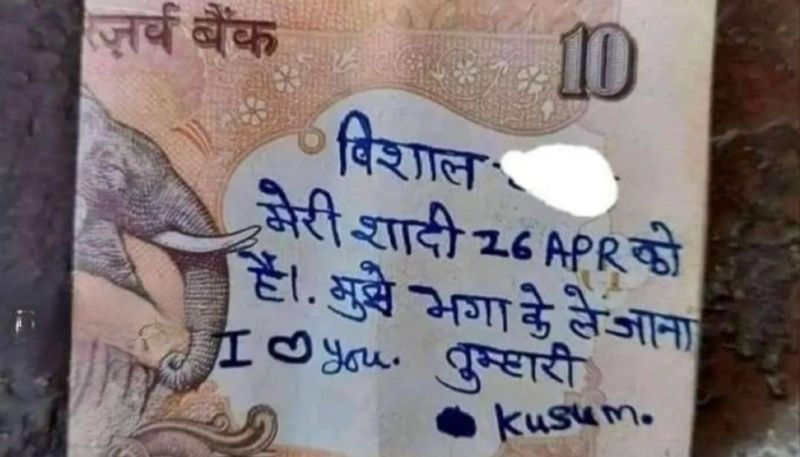 ज़र्व बैंक
10
विशाल -
मेरी शादी 26 APR को
है।. मुझे भगा के ले जाना
I ♡ you. तुम्हारी
Kusum.